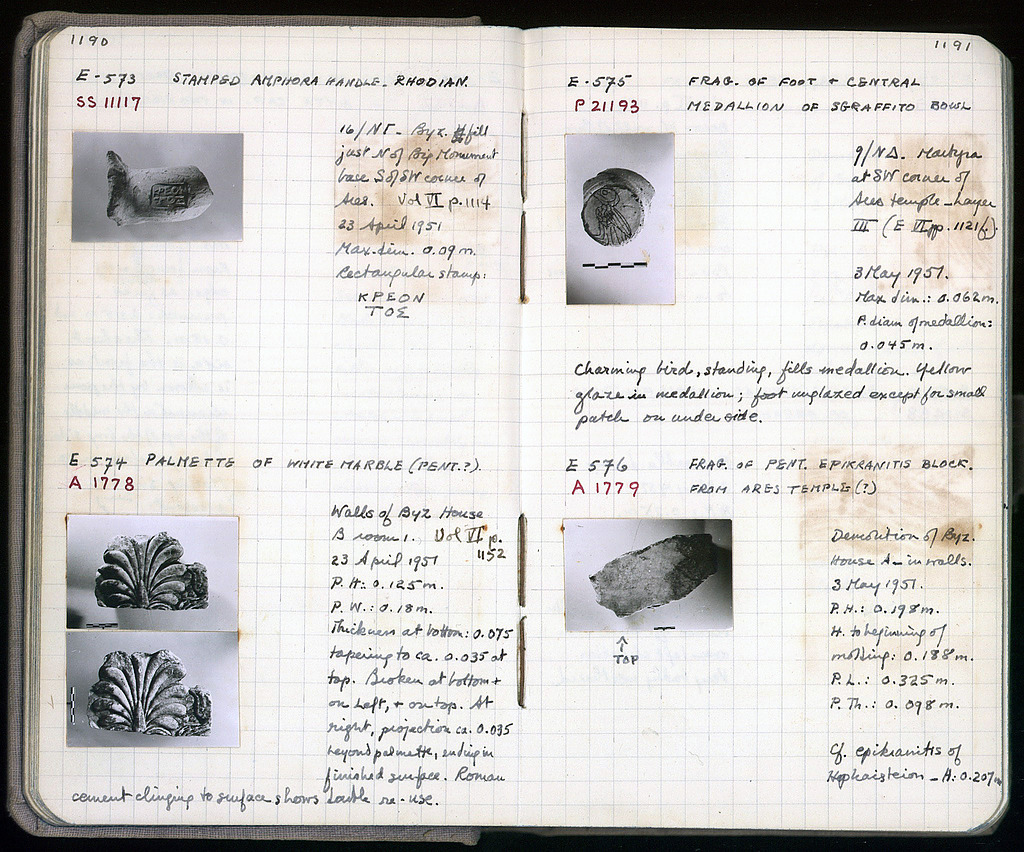 1190
E-573 STAMPED AMPHORA HANDLE. RHODIAN.
SS 11117
16/ΝΓ. Byz. fill
just N of Big Monument
base S of SW corner of
Ares. Vol VI p. 1114
23 April 1951
Max. dim. 0.09 m.
Rectangular stamp:
ΚΡΕΟΝ
ΤΟΣ
E 574 PALMETTE OF WHITE MARBLE (PENT.?).
A 1778
Walls of Byz House
B room 1. Vol VI p.
1152
23 April 1951
P. H.: 0.125 m.
P. W.: 0.18 m.
Thickness at bottom: 0.075
tapering to ca. 0.035 at
top. Broken at bottom +
on left, + on top. At
right, projection ca. 0.035
beyond palmette, ending in
finished surface. Roman
cement clinging to surface shows double re-use.
1191
E-575 FRAG. OF FOOT + CENTRAL
P 21193 MEDALLION OF SGRAFFITO BOWL
9/ΝΔ. Martyra
at SW corner of
Ares temple - Layer
III (E VI pp. 1121 f).
3 May 1951.
Max dim.: 0.062 m.
P. diam of medallion:
0.045 m.
Charming bird, standing, fills medallion. Yellow
glaze in medallion; foot unglazed except for small
patch on under side.
E 576 FRAG. OF PENT. EPIKRANITIS BLOCK.
A 1779 FROM ARES TEMPLE (?)
TOP
Demolition of Byz.
House A - in walls.
3 May 1951.
P. H.: 0.198 m.
H. to beginning of
molding: 0.188 m.
P. L.: 0.325 m.
P. Th.: 0.098 m.
Cf. epikranitis of
Hephaisteion - H: 0.207 m